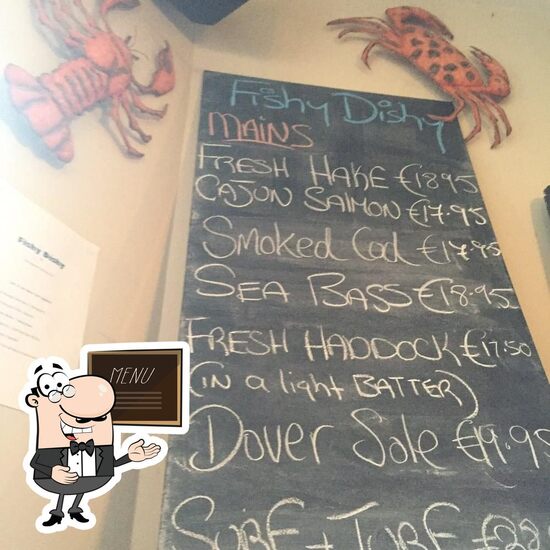 Fishy Dishy
MAINS
FRESH HAKE €18.95
CAJON SALMON €17.95
Smoked Cod €17.95
SEA BASS €18.95
FRESH HADDOCK €17.50
(in a light BATTER)
Dover Sole €19.95
SURF + TURF €22
Fishy Dishy
MENU